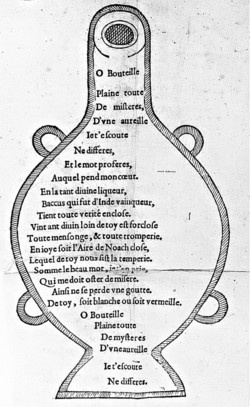 O Bouteille
Plaine toute
De misteres,
D'vne aureille
Iet'escoute
Ne differes,
Et le mot proferes,
Auquel pend mon cœur.
En la tant diuine liqueur,
Baccus qui fut d'Inde vainqueur,
Tient toute verité enclose.
Vint ant diuin loin de toy est forclose
Toute mensonge, & toute tromperie,
En ioye soit l'Aire de Noach close,
Lequel de toy nous fist la temperie.
Somme le beau mot,
Qui me doit oster de misere.
Ainsi ne se perde vne goutte.
De toy, soit blanche ou soit vermeille.
O Bouteille
Plaine toute
De mysteres
D'vne aureille
Iet'escoute
Ne differes.